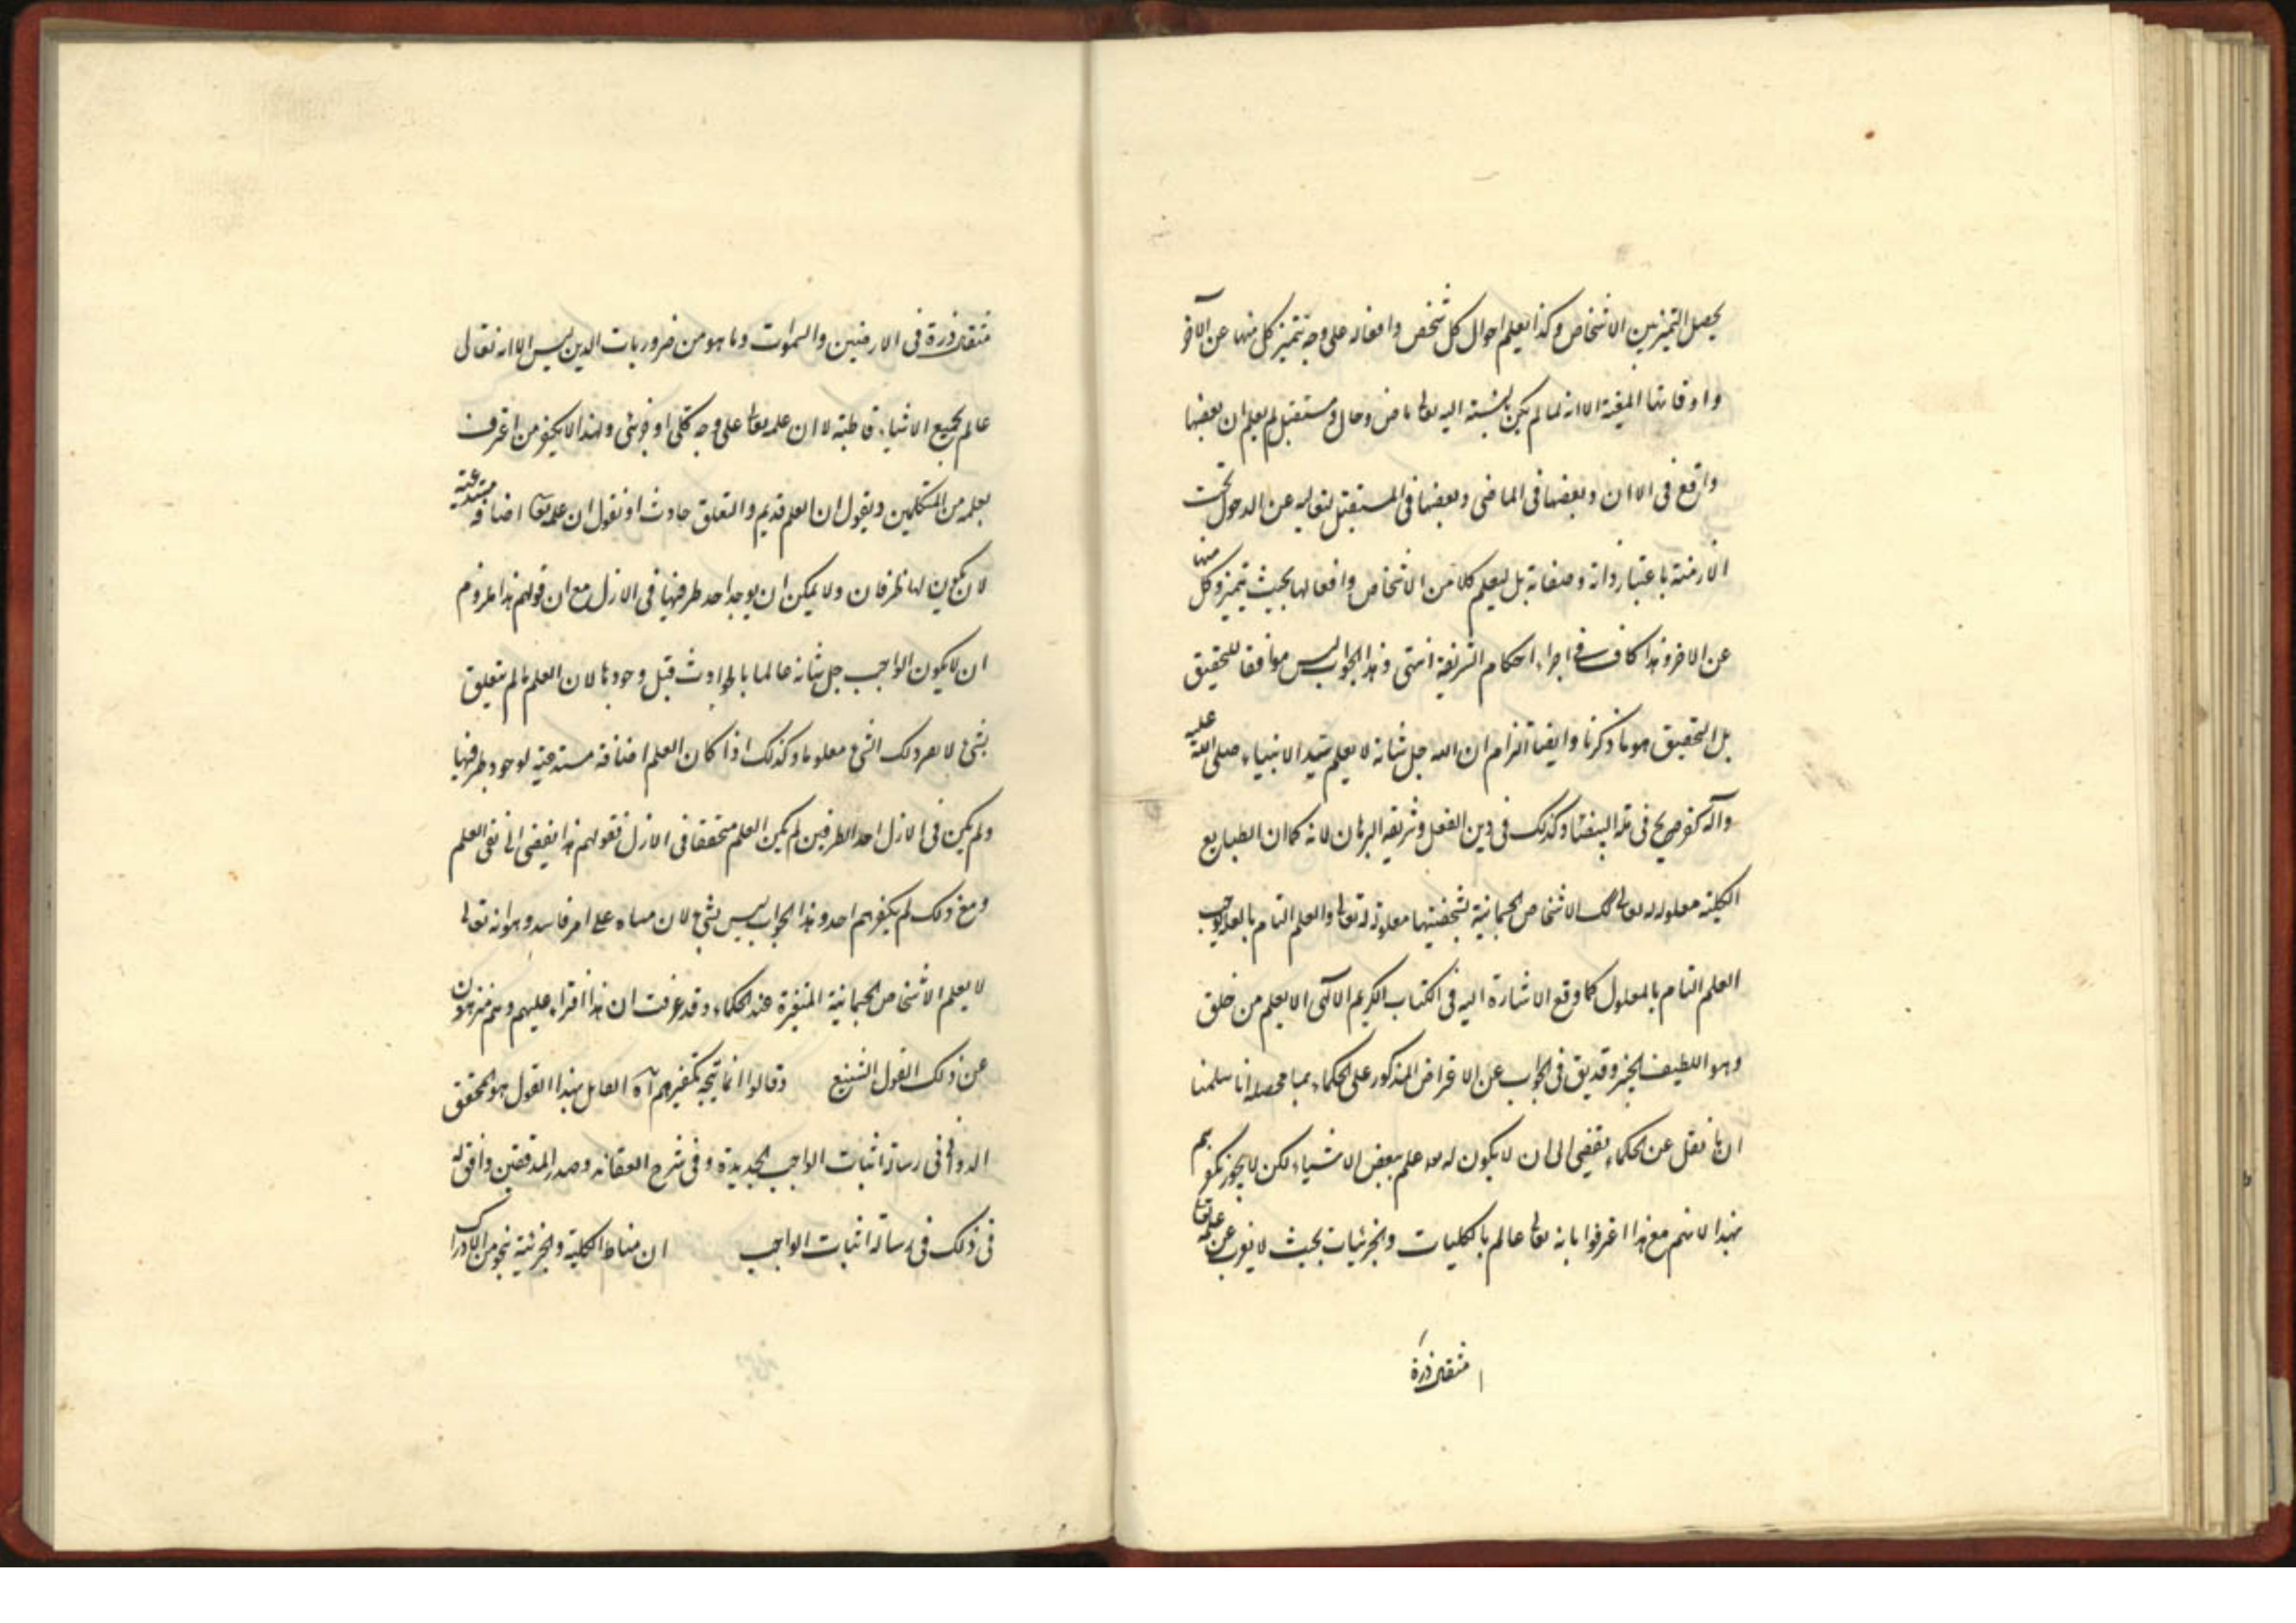 يحصل التميز بين الاشخاص وكذا يعلم احوال كل شخص وافعاله على وجه تتميز كل منها عن الآخر
واوقاتها المعينة الا انه لما لم يكن بنسبة اليه تعالى ماض وحال ومستقبل لم يعلم ان بعضها
واقع فى الآن وبعضها فى الماضى وبعضها فى المستقبل لتعاليه عن الدخول تحت
الازمنة باعتبار ذاته وصفاته بل ليعلم كلا من الاشخاص وافعالها بحيث يتميز كل منها
عن الاخر وهذا كاف فى اجراء احكام الشريعة انتهى وهذا الجواب ليس موافقا للتحقيق
بل التحقيق هو ما ذكرنا وايضا التزام ان الله جل شانه لا يعلم سيد الانبياء صلى الله عليه
وآله كفر صريح فى ملة البيضاء وكذلك فى دين العقل وشريعة البرهان لانه كما ان الطبايع
الكلية معلوله له تعالى كك الاشخاص الجسمانية بشخصيتها معلولة له تعالى والعلم التام بالعلة يوجب
العلم التام بالمعلول كما وقع الاشارة اليه فى الكتاب الكريم الالهى الا يعلم من خلق
وهو اللطيف الخبير وقد يق فى الجواب عن الاعتراض المذكور على الحكماء بما محصله انا سلمنا
ان ما نقل عن الحكماء يقضى الى ان لا يكون له تعه علم ببعض الاشياء لكن لا يجوز تكفيرهم
بهذا لانهم مع هذا اعترفوا بانه تعالى عالم بالكليات والجزئيات بحيث لا يعزب عن علمه تعالى
مثقال ذرة
مثقال ذرة فى الارضين والسموات وما هو من ضروريات الدين ليس الا انه تعالى
عالم بجميع الاشياء قاطبة لا ان علمه تعالى على وجه كلى او جزئى ولهذا لا يكفر من اعترف
بعلمه من المتكلمين ويقول ان العلم قديم والتعلق حادث او نقول ان علمه تعالى اضافة مستدعية
لان يكون لها طرفان ولا يمكن ان يوجد احد طرفيها فى الازل مع ان قولهم هذا ملزوم
ان لا يكون الواجب جل شانه عالما بالحوادث قبل وجودها لان العلم ما لم يتعلق
بشئ لا يصر ذلك الشئ معلوما وكذلك اذا كان العلم اضافة مستدعية لوجود طرفيها
ولم يكن فى الازل احد الطرفين لم يكن العلم متحققا فى الازل فقولهم هذا يفضى الى نفى العلم
ومع ذلك لم يكفرهم احد وهذا الجواب ليس بشئ لان مبناه على امر فاسد وهو انه تعالى
لا يعلم الاشخاص الجسمانية المتغيرة عند الحكماء وقد عرفت ان هذا افتراء عليهم وهم منزهون
عن ذلك القول الشنيع وقالوا انما يتجه تكفيرهم اه القائل بهذا القول هو المحقق
الدوانى فى رسالة اثبات الواجب الجديدة وفى شرح العقائد وصدر المدققين وافق له
فى ذلك فى رسالة اثبات الواجب ان مناط الكلية والجزئية نحو من الادراك